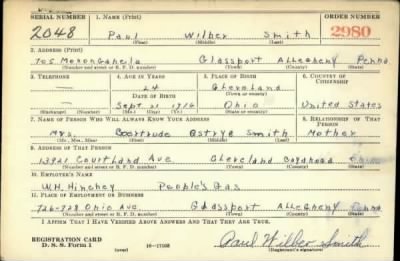 SERIAL NUMBER 1. NAME (Print) ORDER NUMBER
2048 Paul Wilber Smith 2980
(First) (Middle) (Last)
2. ADDRESS (Print)
705 Monongahela Glassport Allegheny Penna
(Number and street or R. F. D. number) (Town) (County) (State)
3. TELEPHONE 4. AGE IN YEARS 5. PLACE OF BIRTH 6. COUNTRY OF CITIZENSHIP
— 24 Cleveland
DATE OF BIRTH (Town or county)
— Sept 21 1916 Ohio United States
(Exchange) (Number) (Mo.) (Day) (Yr.) (State or country)
7. NAME OF PERSON WHO WILL ALWAYS KNOW YOUR ADDRESS 8. RELATIONSHIP OF THAT PERSON
Mrs. Smith Mother
(Mr., Mrs., Miss) (First) (Middle) (Last)
9. ADDRESS OF THAT PERSON
13921 Courtland Ave Cleveland Ohio
(Number and street or R. F. D. number) (Town) (County) (State)
10. EMPLOYER'S NAME
W.H. Hinchey People's Gas
11. PLACE OF EMPLOYMENT OR BUSINESS
726-728 Ohio Ave. Glassport Allegheny Penna
(Number and street or R. F. D. number) (Town) (County) (State)
I AFFIRM THAT I HAVE VERIFIED ABOVE ANSWERS AND THAT THEY ARE TRUE.
REGISTRATION CARD
D. S. S. Form 1 (over) 16—17105 Paul Wilber Smith
(Registrant's signature)